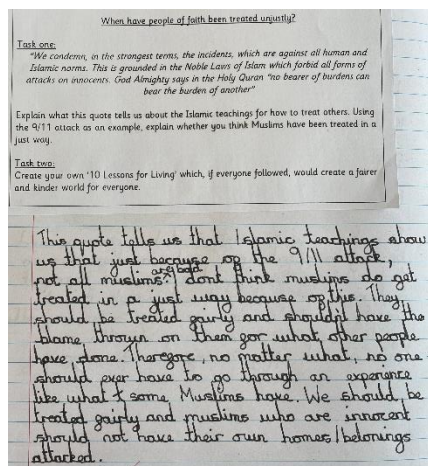 When have people of faith been treated unjustly?
Task one:
"We condemn, in the strongest terms, the incidents, which are against all human and
Islamic norms. This is grounded in the Noble Laws of Islam which forbid all forms of
attacks on innocents. God Almighty says in the Holy Quran "no bearer of burdens can
bear the burden of another"
Explain what this quote tells us about the Islamic teachings for how to treat others. Using
the 9/11 attack as an example, explain whether you think Muslims have been treated in a
just way.
Task two:
Create your own '10 Lessons for Living' which, if everyone followed, would create a fairer
and kinder world for everyone.
This quote tells us that Islamic teachings show
us that just because of the 9/11 attack,
not all muslims are bad. I dont think muslims do get
treated in a just way because of this. They
should be treated fairly and shouldn't have the
blame, thrown on them for what other people
have done. Therefore, no matter what, no one
should ever have to go through an experience
like what some Muslims have. We should be
treated fairly and muslims who are innocent
should not have their own homes/belonings
attacked.